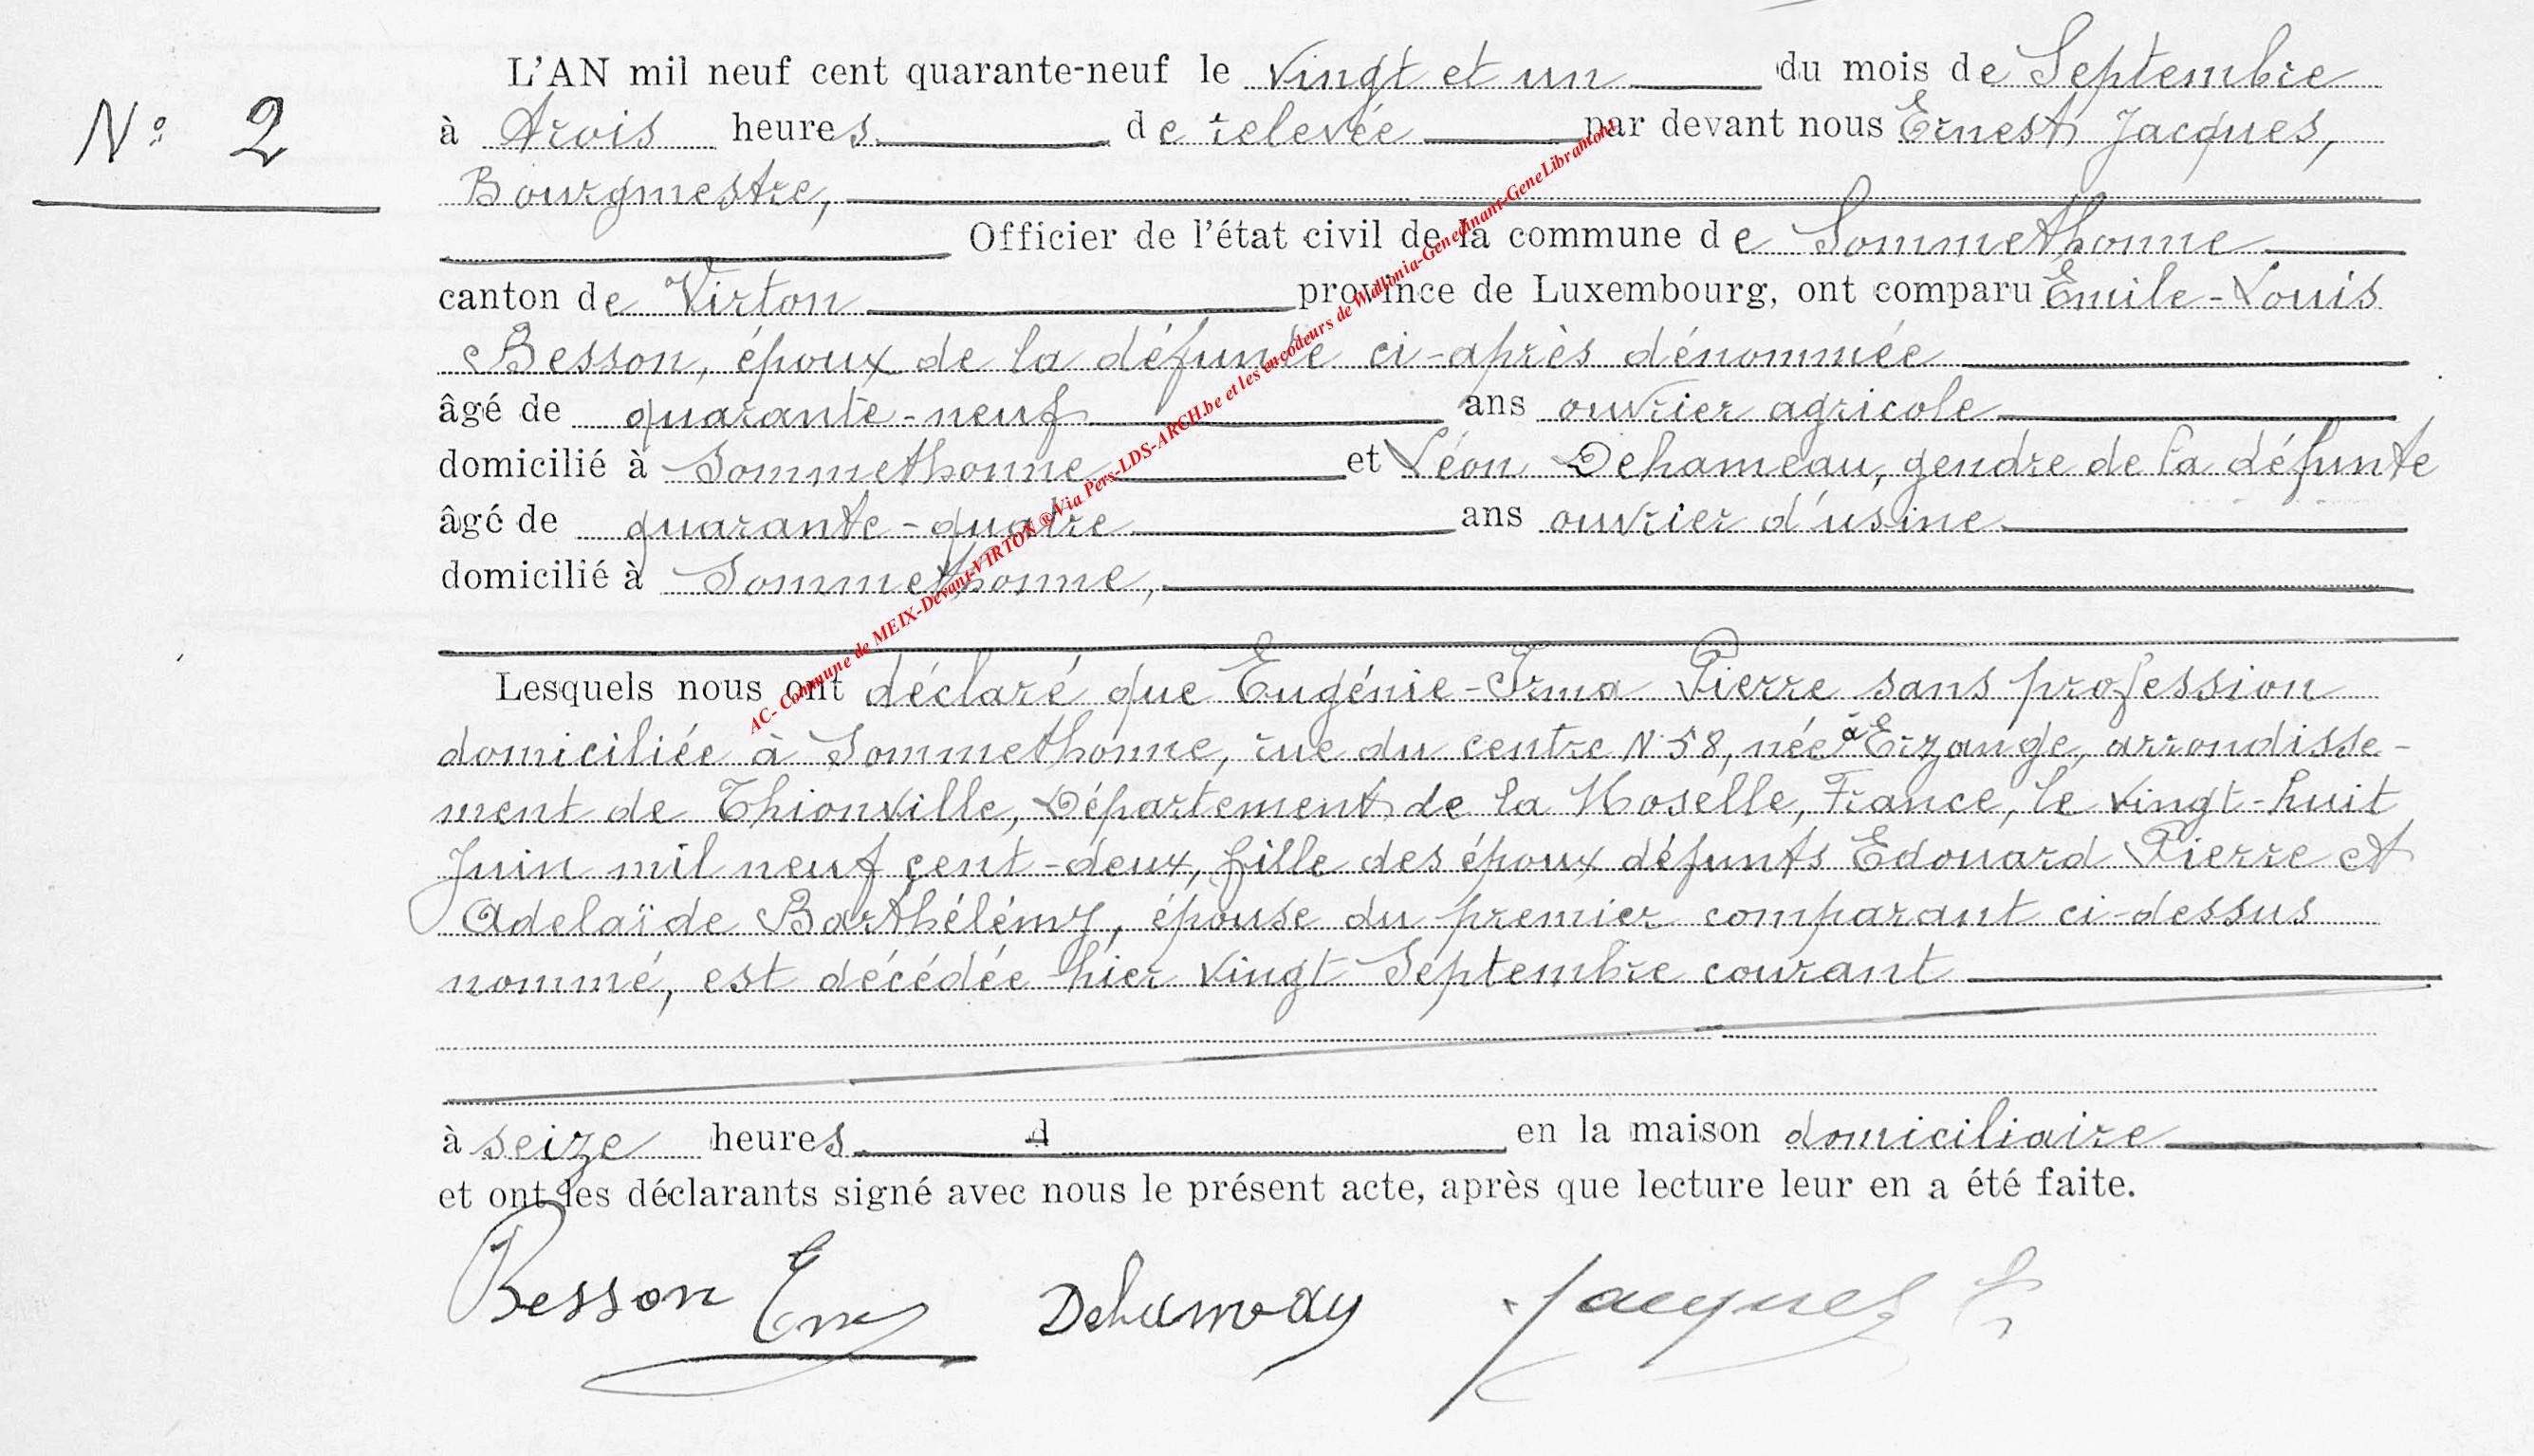 L'AN mil neuf cent quarante-neuf le vingt et un du mois de Septembre
N° 2
à trois heures de relevée par devant nous Ernest Jacques,
Bourgmestre,
Officier de l'état civil de la commune de Sommethonne
canton de Virton province de Luxembourg, ont comparu Emile-Louis
Besson, époux de la défunte ci-après dénommée
âgé de quarante-neuf ans ouvrier agricole
domicilié à Sommethonne et Léon Dehameau, gendre de la défunte
âgé de quarante-quatre ans ouvrier d'usine
domicilié à Sommethonne,
Lesquels nous ont déclaré que Eugénie-Irma Pierre sans profession
domiciliée à Sommethonne, rue du centre N°58, née à Erzange, arrondisse-
ment de Thionville, Département de la Moselle, France, le vingt-huit
Juin mil neuf cent-deux, fille des époux défunts Edouard Pierre et
Adelaïde Barthélémy, épouse du premier comparant ci-dessus
nommé, est décédée hier vingt Septembre courant
à seize heures d en la maison domiciliaire
et ont les déclarants signé avec nous le présent acte, après que lecture leur en a été faite.
Besson Em Jacques E
AC- Commune de MEIX-Devant-VIRTON®Via Pers-LDS-ARCH.be et les encodeurs de Wallonia-Genedinant-GeneLibramont